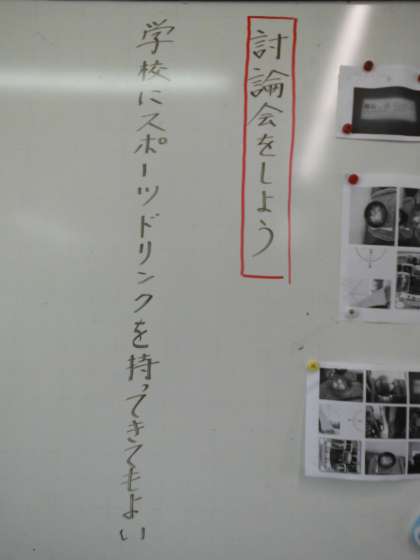 討論会をしよう
学校にスポーツドリンクを持ってきてもよい